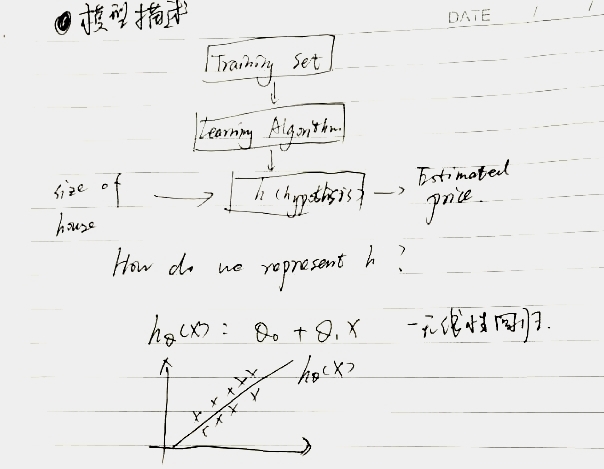 模型描述
DATE / /
Training Set
Learning Algorithm
size of house
h (hypothesis)
Estimated price.
How do we represent h ?
hθ(x) = θ₀ + θ₁x 一元线性回归.
hθ(x)